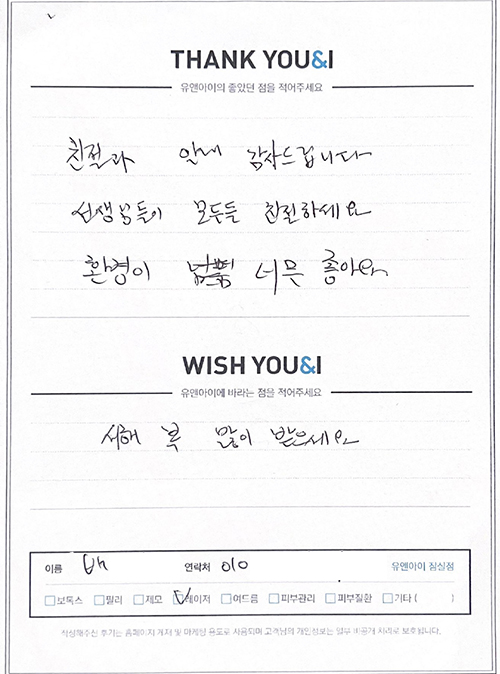 THANK YOU&I
유앤아이의 좋았던 점을 적어주세요
친절과 안내 감사드립니다
선생님들이 모두들 친절하세요
환경이 너무 좋아요
WISH YOU&I
유앤아이에 바라는 점을 적어주세요
새해 복 많이 받으세요
이름 배 연락처 010 유앤아이 잠실점
보톡스 필러 제모 레이저 여드름 피부관리 피부질환 기타 ( )
작성해주신 후기는 홈페이지 게재 및 마케팅 용도로 사용되며 고객님의 개인정보는 일부 비공개 처리로 보호됩니다.